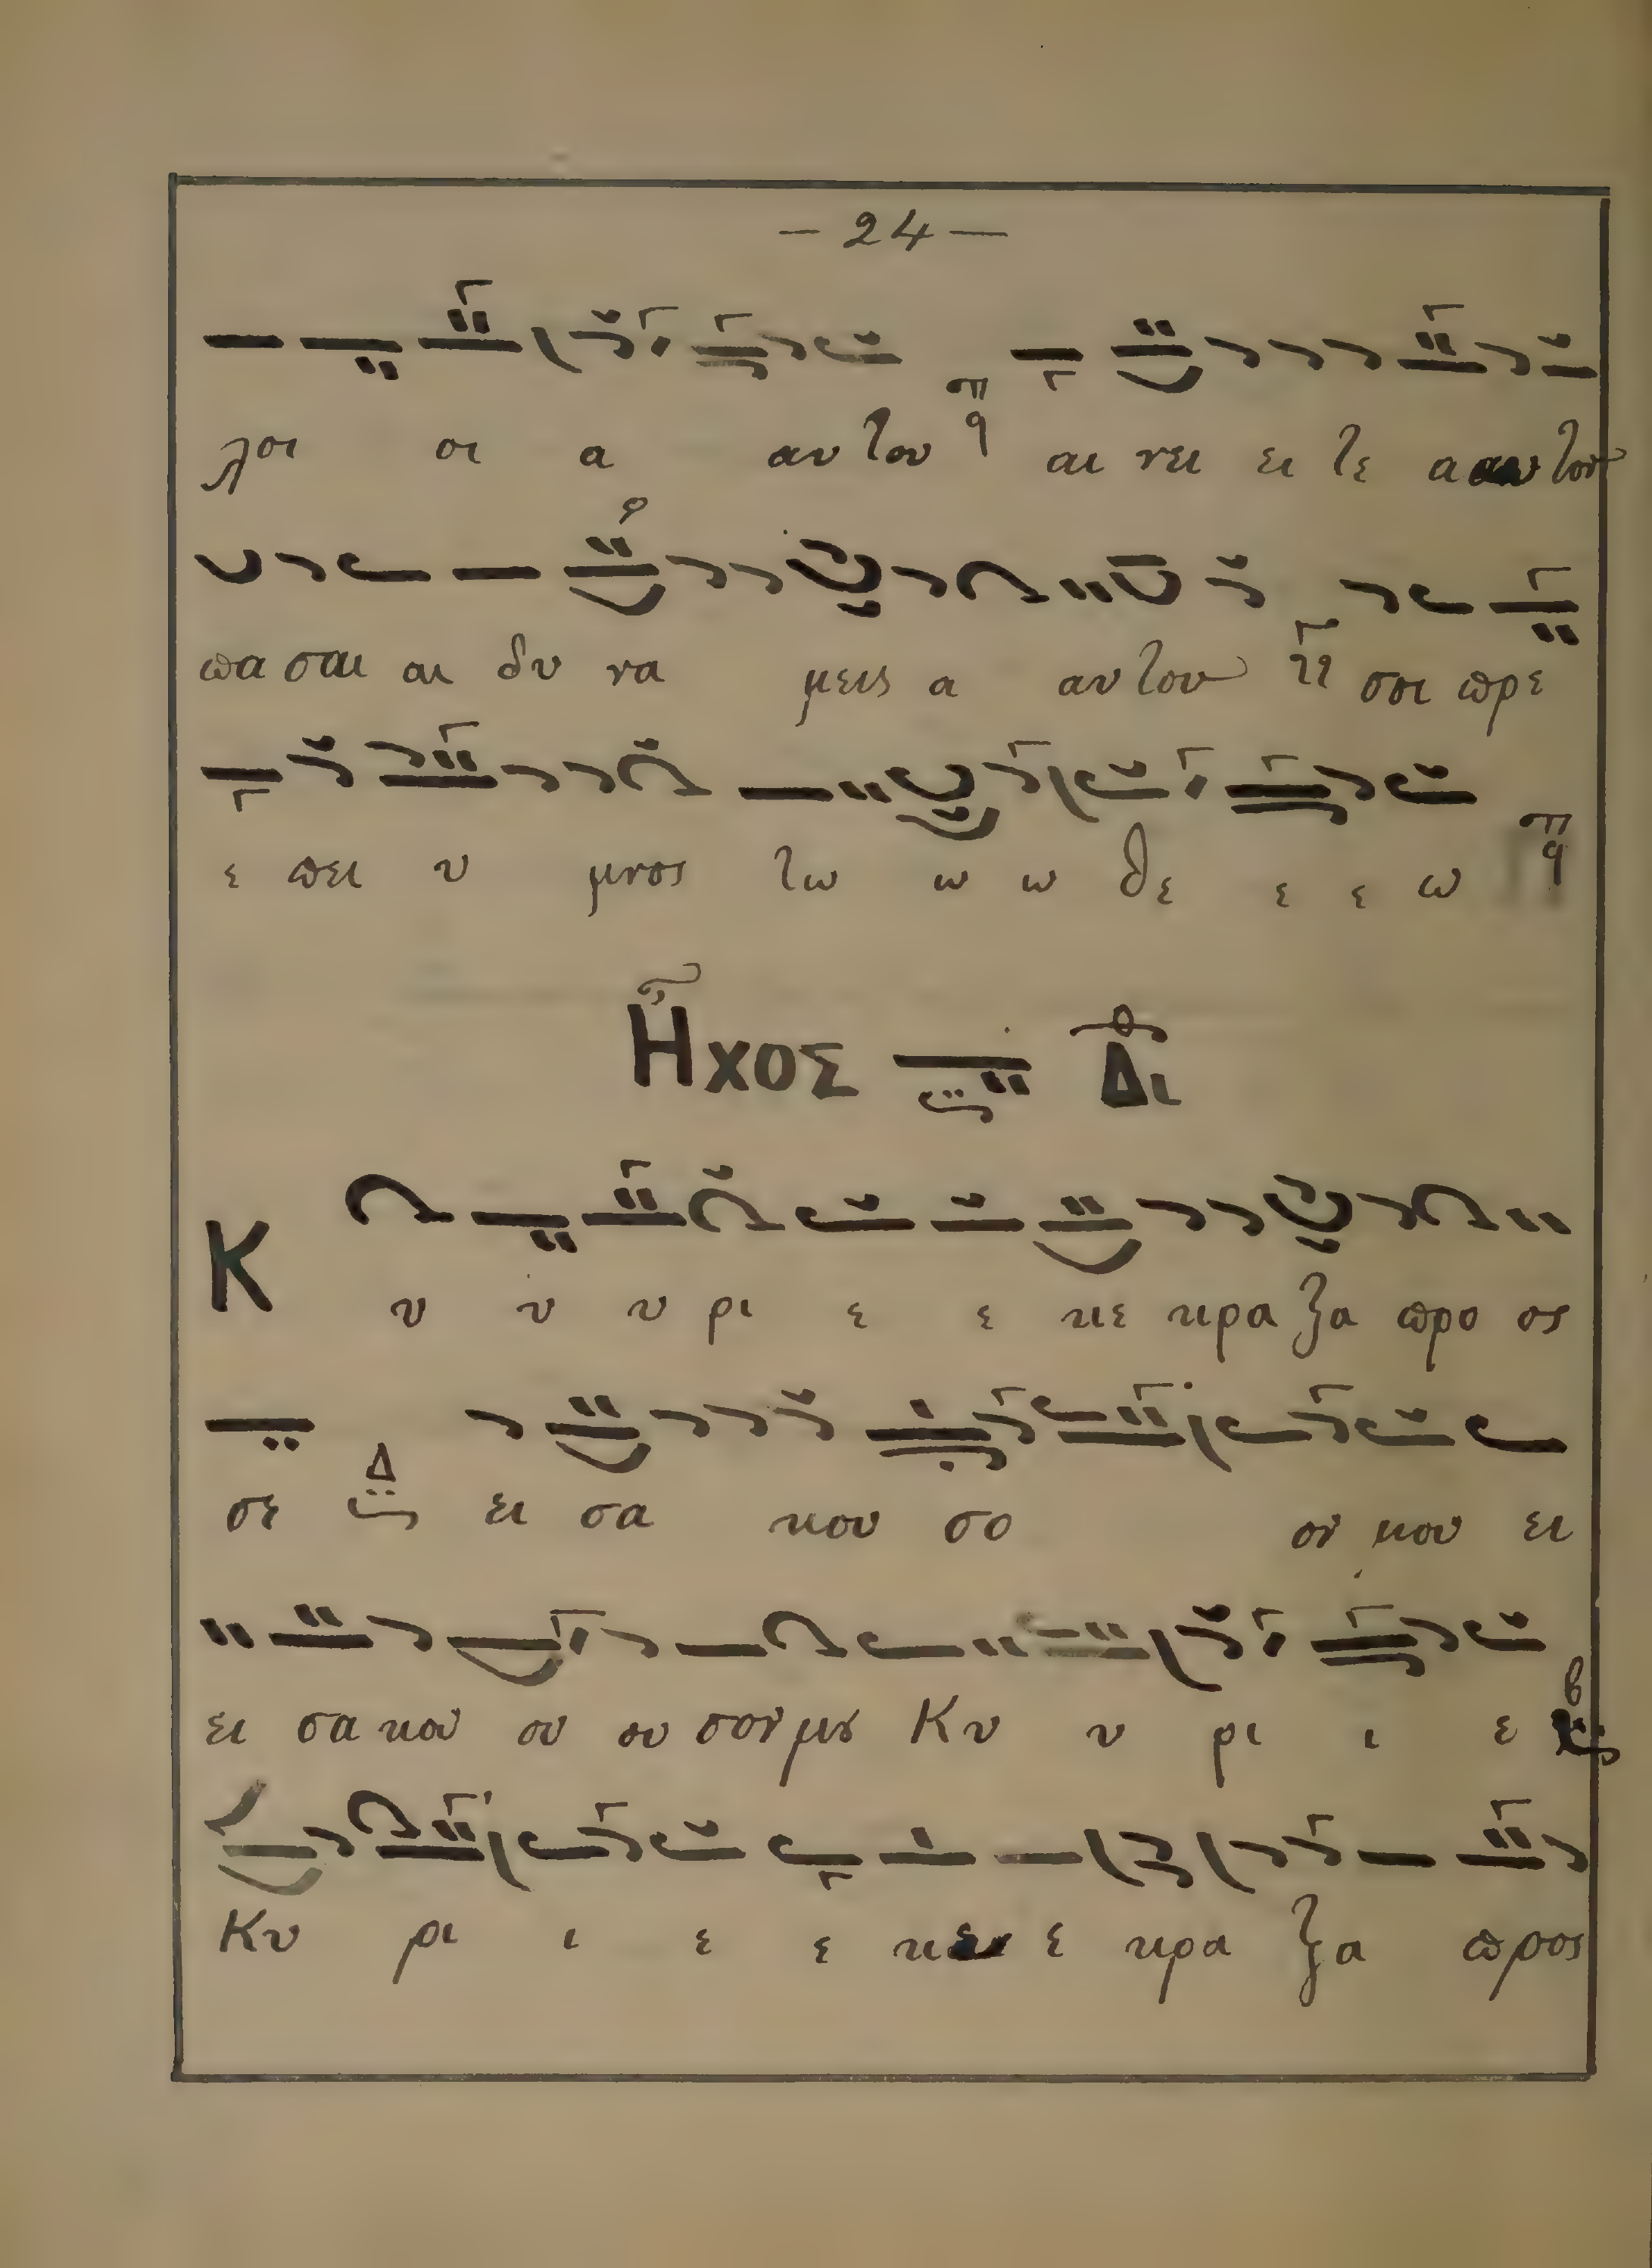 — 24 —
λοι οι α αυ του αι νει ει τε α αυ του
πα σαι αι δυ να μεις α αυ του σοι πρε
ε πει υ μνος τω ω ω θε ε ε ω
Ἦχος Δι
Κ υ υ υ ρι ε ε κε κρα ξα προ ος
σε Δ ει σα κου σο ον μου ει
ει σα κου ου ου σον μȣ Κυ υ ρι ι ε
Κυ ρι ι ε ε κε ε κρα ξα προς